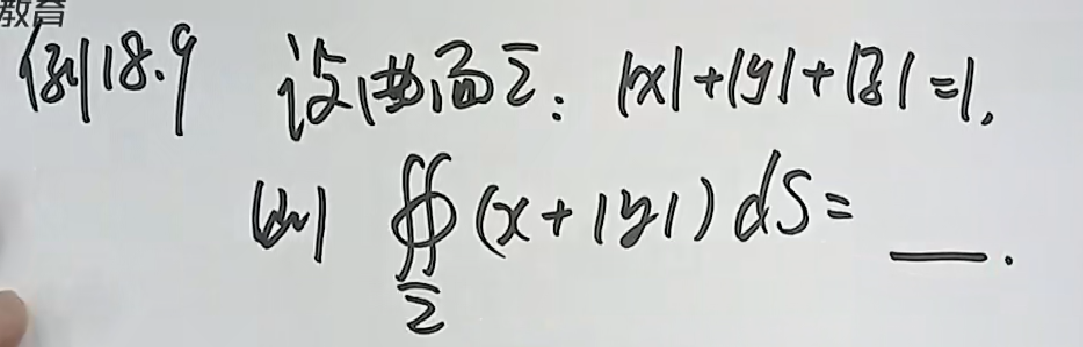 教育
例18.9 设曲面Σ: |x|+|y|+|z|=1,
则 ∯_Σ (x+|y|) dS = ___.